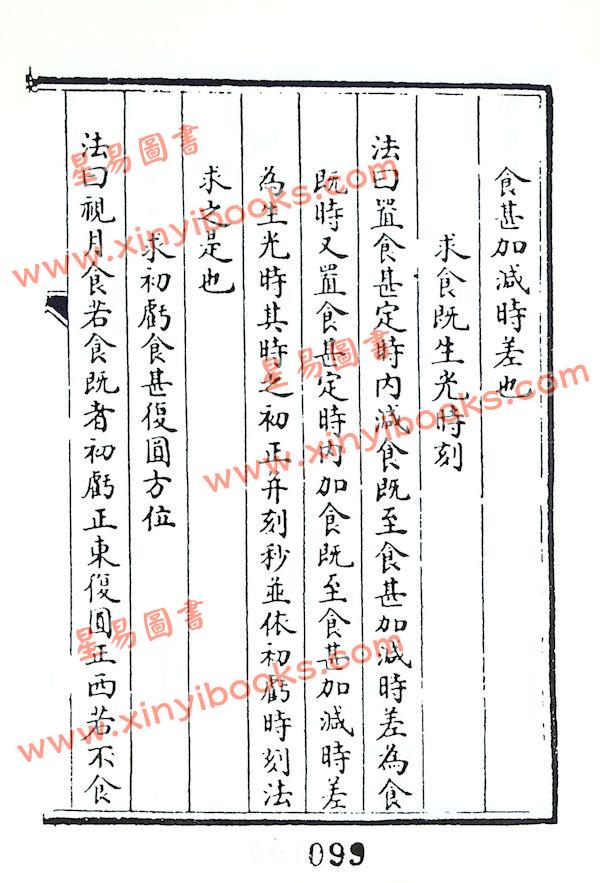 食甚加减時差也
求食既生光時刻
法曰置食甚定時内减食既至食甚加减時差為食
既時又置食甚定時内加食既至食甚加减時差
為生光時其時之初正并刻秒並依初虧時刻法
求之是也
求初虧食甚復圓方位
法曰視月食若食既者初虧正東復圓正西若不食
099
星易圖書
www.xinyibooks.com
星易圖書
www.xinyibooks.com
星易圖書
www.xinyibooks.com